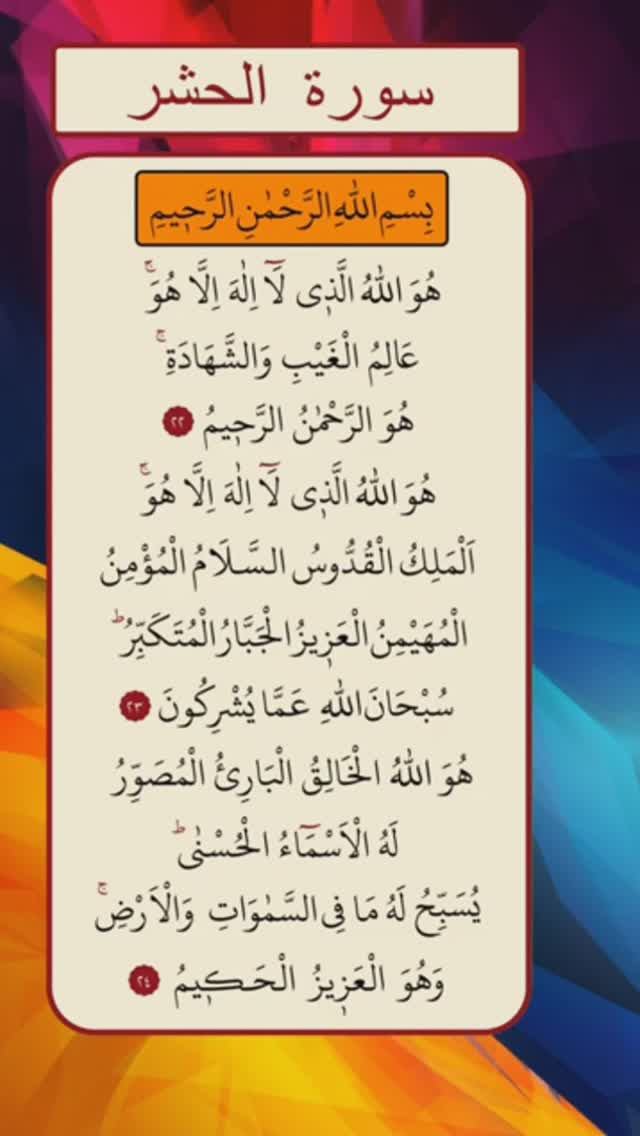 سورة الحشر
بِسْمِ اللّٰهِ الرَّحْمٰنِ الرَّحٖيمِ
هُوَ اللّٰهُ الَّذٖى لَٓا اِلٰهَ اِلَّا هُوَۚ
عَالِمُ الْغَيْبِ وَالشَّهَادَةِۚ
هُوَ الرَّحْمٰنُ الرَّحٖيمُ ٢٢
هُوَ اللّٰهُ الَّذٖى لَٓا اِلٰهَ اِلَّا هُوَۚ
اَلْمَلِكُ الْقُدُّوسُ السَّلَامُ الْمُؤْمِنُ
الْمُهَيْمِنُ الْعَزٖيزُ الْجَبَّارُ الْمُتَكَبِّرُؕ
سُبْحَانَ اللّٰهِ عَمَّا يُشْرِكُونَ ٢٣
هُوَ اللّٰهُ الْخَالِقُ الْبَارِئُ الْمُصَوِّرُ
لَهُ الْاَسْمَٓاءُ الْحُسْنٰىؕ
يُسَبِّحُ لَهُ مَا فِى السَّمٰوَاتِ وَالْاَرْضِۚ
وَهُوَ الْعَزٖيزُ الْحَكٖيمُ ٢٤